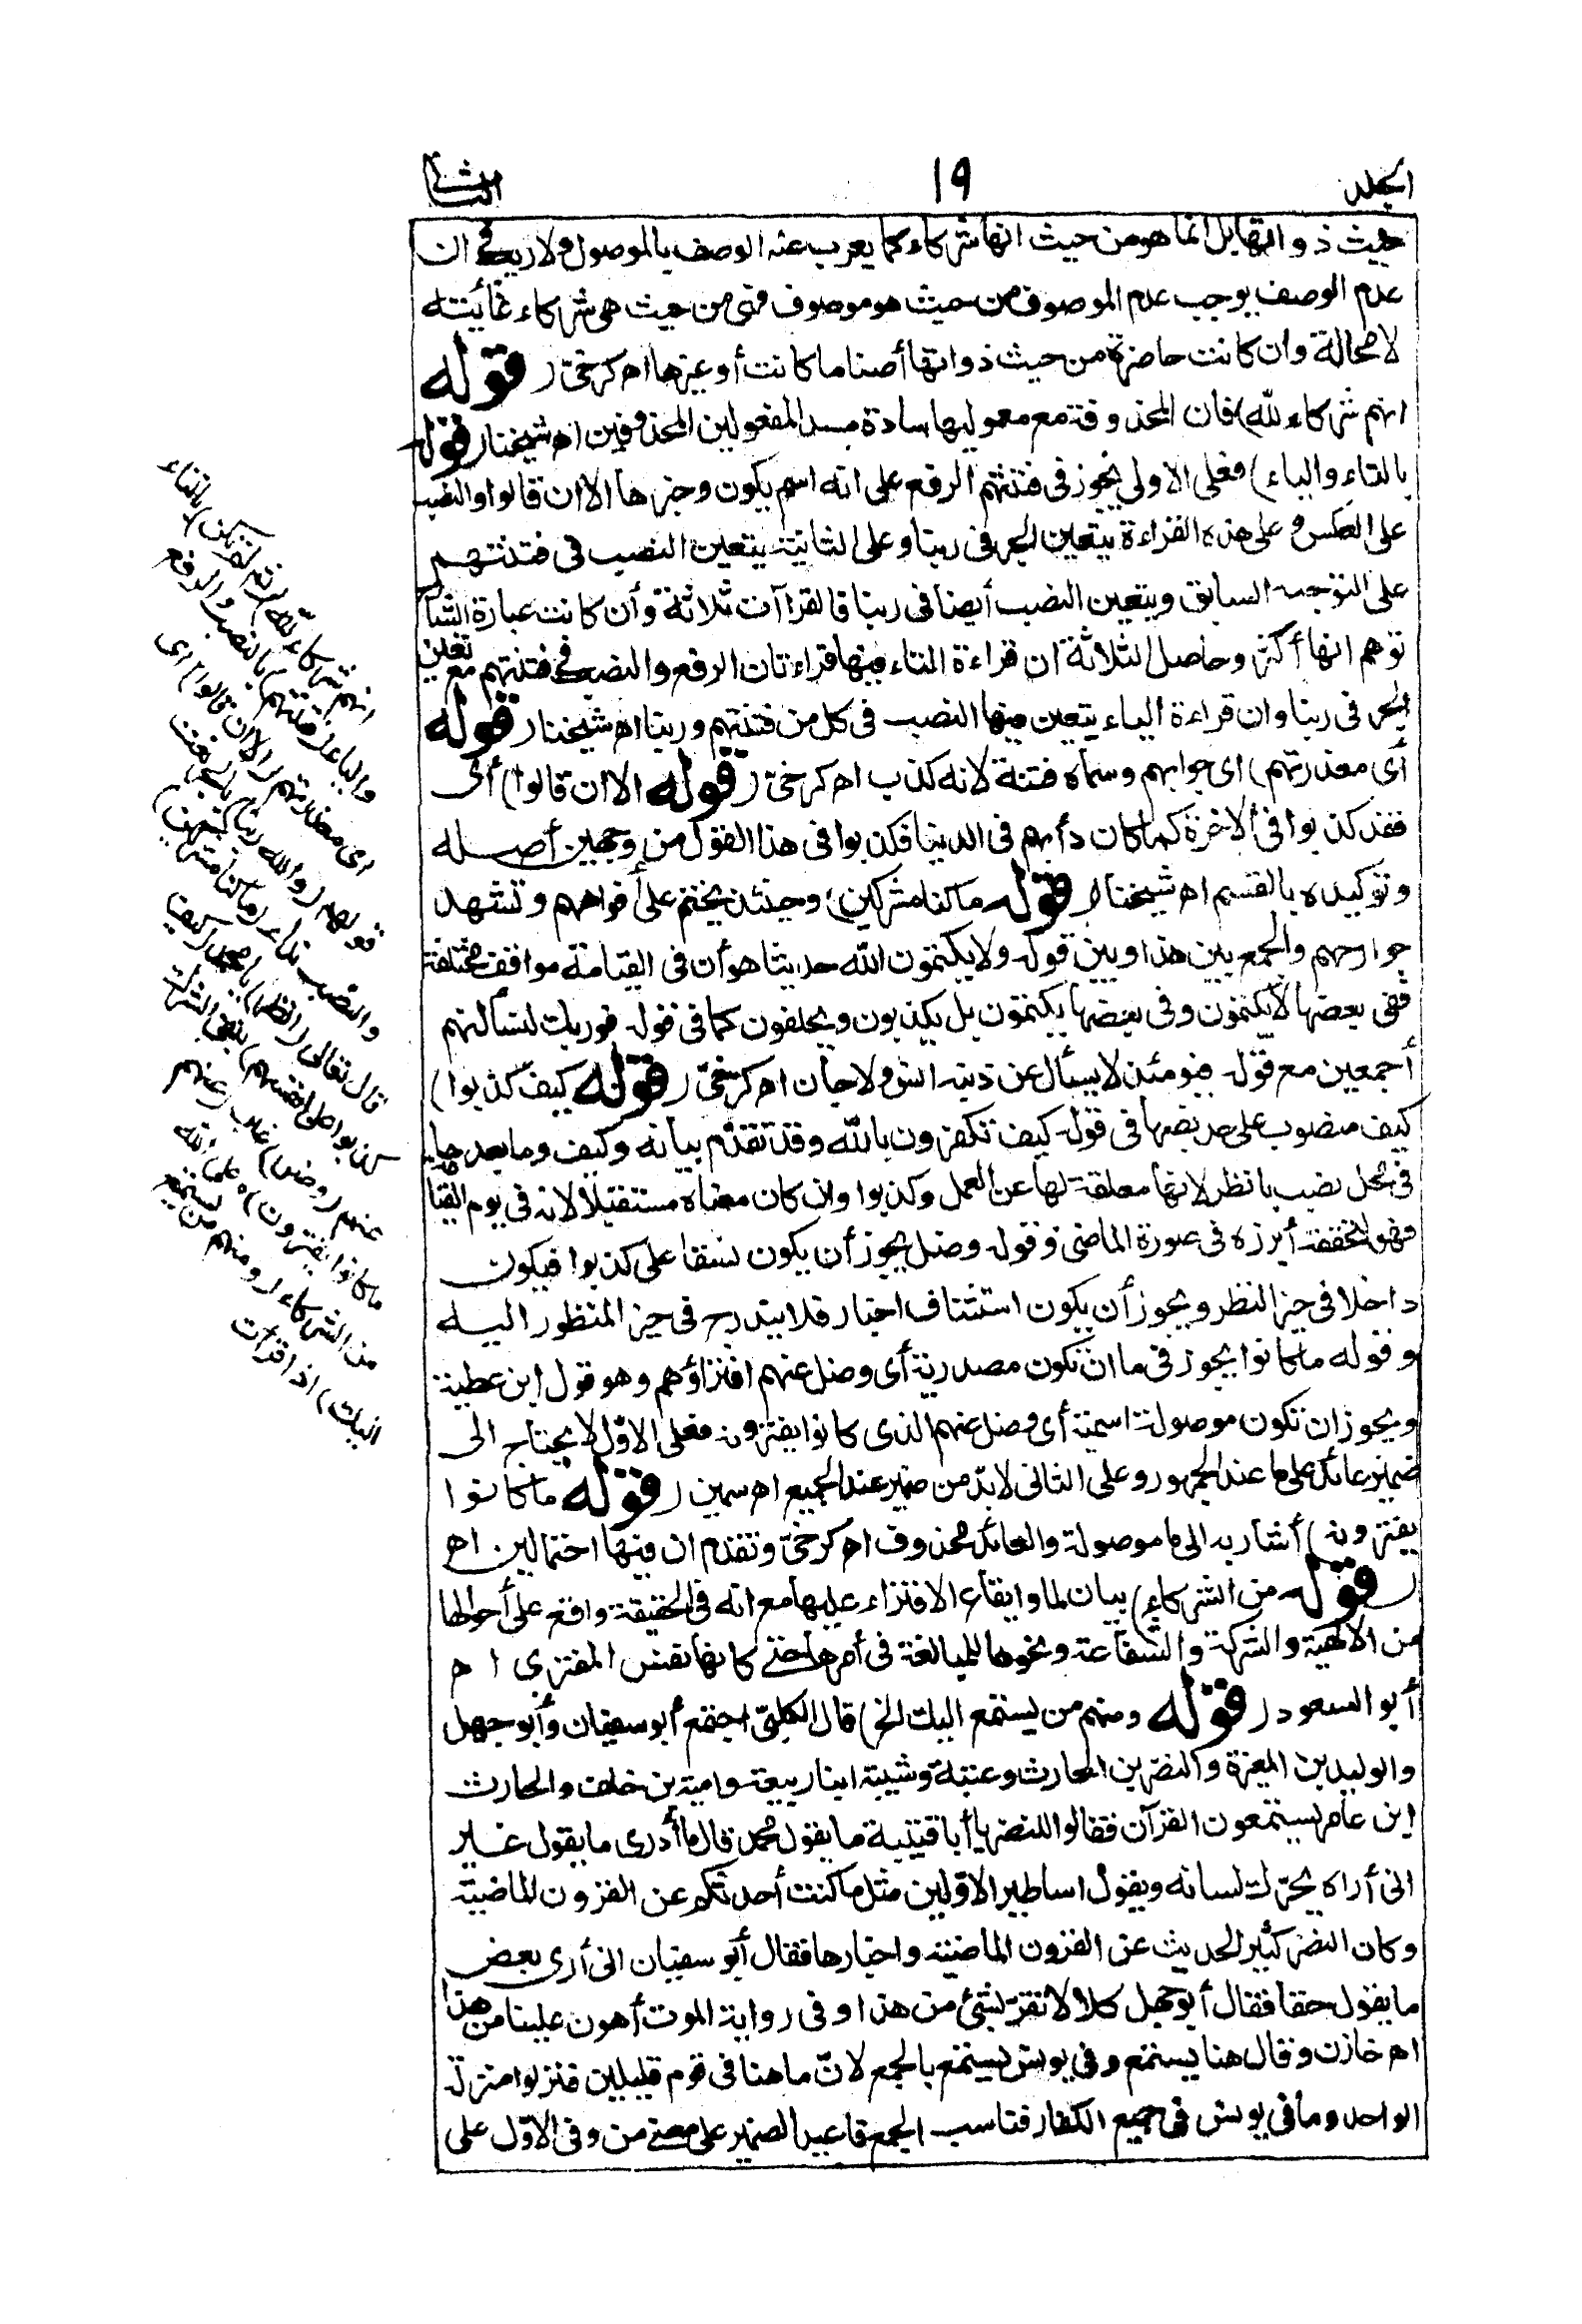 الجلد
١٩
الثانى
حيث ذواتها بل انما هو من حيث انها شركاء كما يعرب عنه الوصف بالموصول ولا ريب فى ان
عدم الوصف يوجب عدم الموصوف من حيث هو موصوف فهى من حيث هى شركاء غائبته
لا محالة وان كانت حاضرة من حيث ذواتها أصناما كانت أو غيرها اه كرخىّ ( قوله
انهم شركاء لله) فان المحذوفة مع معموليها سادة مسد المفعولين المحذوفين اه شيخنا ( قوله
بالتاء والياء) فعلى الاولى يجوز فى فتنتهم الرفع على انه اسم يكون وخبرها الا ان قالوا والنصب
على العكس وعلى هذه القراءة يتعين الجر فى ربنا وعلى الثانية يتعين النصب فى فتنتهم
على التوجيه السابق ويتعين النصب أيضا فى ربنا فالقراآت ثلاثة وأن كانت عبارة الشا
توهم انها أكثر وحاصل الثلاثة ان قراءة التاء فيها قراءتان الرفع والنصب فى فتنتهم مع تعين
الجر فى ربنا وان قراءة الياء يتعين فيها النصب فى كل من فتنتهم وربنا اه شيخنا ( قوله
أى معذرتهم) اى جوابهم وسماه فتنة لانه كذب اه كرخىّ ( قوله الا ان قالوا) أى
فقد كذبوا فى الآخرة كما كان دأبهم فى الدنيا فكذبوا فى هذا القول من وجهين أصله
وتوكيده بالقسم اه شيخنا ( قوله ما كنا مشركين) وحينئذ يختم على أفواههم وتشهد
جوارحهم والجمع بين هذا وبين قوله ولا يكتمون الله حديثا هو أن فى القيامة مواقف مختلفة
ففى بعضها لا يكتمون وفى بعضها يكتمون بل يكذبون ويحلفون كما فى قوله فوربك لنسألنهم
أجمعين مع قوله فيومئذ لا يسأل عن ذنبه انس ولا جان اه كرخىّ ( قوله كيف كذبوا)
كيف منصوب على حد نصبها فى قوله كيف تكفرون بالله وقد تقدّم بيانه وكيف وما بعدها
فى محل نصب بانظر لانها معلقة لها عن العمل وكذبوا وان كان معناه مستقبلا لانه فى يوم القيا
فهو لتحققه أبرزه فى صورة الماضى وقوله وضل يجوز أن يكون نسقا على كذبوا فيكون
داخلا فى حيز النظر ويجوز أن يكون استئناف اخبار فلا يندرج فى حيز المنظور اليه
وقوله ما كانوا يجوز فى ما ان تكون مصدرية أى وضل عنهم افتراؤهم وهو قول ابن عطية
ويجوز ان تكون موصولة اسمية أى وضل عنهم الذى كانوا يفترونه فعلى الاوّل لا يحتاج الى
ضمير عائد على ما عند الجمهور وعلى الثانى لا بدّ من ضمير عند الجميع اه سمين ( قوله ما كانوا
يفترونه) أشار به الى ما موصولة والعائد محذوف اه كرخىّ وتقدم ان فيها احتمالين اه
( قوله من الشركاء) بيان لما وايقاع الافتراء عليها مع انه فى الحقيقة واقع على أحوالها
من الالهية والشركة والشفاعة ونحوها للمبالغة فى أمرها حتى كانها نفس المفترى اه
أبو السعود ( قوله ومنهم من يستمع اليك الخ) قال الكلبىّ اجتمع أبو سفيان وأبو جهل
والوليد بن المغيرة والنضر بن الحارث وعتبة وشيبة ابنا ربيعة وامية بن خلف والحارث
ابن عامر يستمعون القرآن فقالوا للنضر يا أبا قتيبة ما يقول محمد قال ما أدرى ما يقول غير
انى أراه يحرّك لسانه ويقول اساطير الاوّلين مثل ما كنت أحدثكم عن القرون الماضية
وكان النضر كثير الحديث عن القرون الماضية واخبارها فقال أبو سفيان انى أرى بعض
ما يقول حقا فقال أبو جهل كلا لا نقرّ لشئ من هذا وفى رواية الموت أهون علينا من هذا
اه خازن وقال هنا يستمع وفى يونس يستمع بالجمع لانّ ما هنا فى قوم قليلين فنزلوا منزلة
الواحد وما فى يونس فى جميع الكفار فناسب الجمع فاعيد الضمير على معنى من وفى الاوّل على
انهم شركاء لله (ثم لم تكن) بالتاء
والياء (فتنتهم) بالنصب والرفع
اى معذرتهم (الا ان قالوا) اى
قولهم (والله ربنا) بالجر نعت
والنصب نداء (ما كنا مشركين)
قال تعالى (انظر) يا محمد (كيف
كذبوا على انفسهم) بنفى الشرك
عنهم (وضل) غاب (عنهم
ما كانوا يفترون)ه على الله
من الشركاء (ومنهم من يستمع
اليك) اذا قرأت